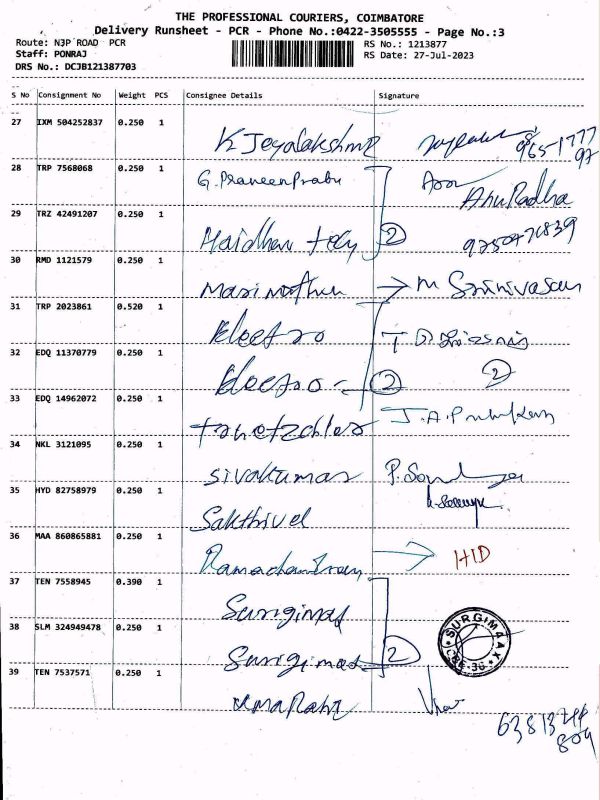 THE PROFESSIONAL COURIERS, COIMBATORE
Delivery Runsheet - PCR - Phone No.:0422-3505555 - Page No.:3
Route: NJP ROAD PCR
RS No.: 1213877
Staff: PONRAJ
RS Date: 27-Jul-2023
DRS No.: DCJB121387703
S No Consignment No Weight PCS Consignee Details Signature
27 IXM 504252837 0.250 1 K Jeyalakshmi
28 TRP 7568068 0.250 1 G. Praveen Prabu
AnuRadha
29 TRZ 42491207 0.250 1 2
30 RMD 1121579 0.250 1 Marimuthu M Srinivasan
31 TRP 2023861 0.520 1 Electro
32 EDQ 11370779 0.250 1 Electro 2 2
33 EDQ 14962072 0.250 1
34 NKL 3121095 0.250 1 Sivakumar
35 HYD 82758979 0.250 1 Sakthivel
36 MAA 860865881 0.250 1 Ramachandran HID
37 TEN 7558945 0.390 1 Surigimax
SURGIMAAX
CBE-36
38 SLM 324949478 0.250 1 Surigimax 2
39 TEN 7537571 0.250 1 UmaRani